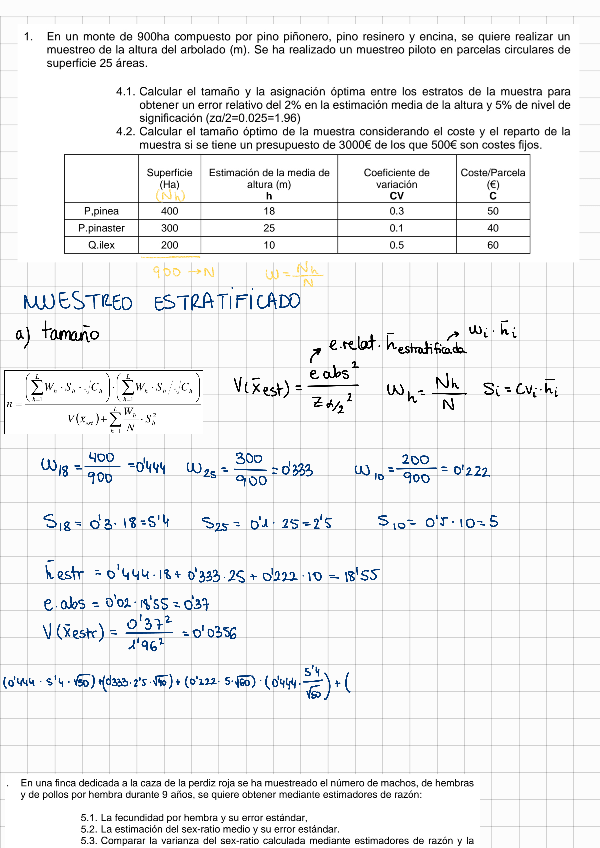 1. En un monte de 900ha compuesto por pino piñonero, pino resinero y encina, se quiere realizar un
muestreo de la altura del arbolado (m). Se ha realizado un muestreo piloto en parcelas circulares de
superficie 25 áreas.
4.1. Calcular el tamaño y la asignación óptima entre los estratos de la muestra para
obtener un error relativo del 2% en la estimación media de la altura y 5% de nivel de
significación (zα/2=0.025=1.96)
4.2. Calcular el tamaño óptimo de la muestra considerando el coste y el reparto de la
muestra si se tiene un presupuesto de 3000€ de los que 500€ son costes fijos.
Superficie (Ha) (Nh) Estimación de la media de altura (m) h Coeficiente de variación CV Coste/Parcela (€) C
P,pinea 400 18 0.3 50
P.pinaster 300 25 0.1 40
Q.ilex 200 10 0.5 60
900 → N W = Nh/N
MUESTREO ESTRATIFICADO
a) tamaño
e.relat. h̄ estratificada → Wi · h̄i
n = (∑ Wh · Sh · √Ch) · (∑ Wh · Sh / √Ch) / (V(x̄est) + ∑ Wh/N · Sh²)
V(x̄est) = e abs² / Zα/2² Wh = Nh/N Si = CVi · h̄i
W18 = 400/900 = 0'444 W25 = 300/900 = 0'333 W10 = 200/900 = 0'222
S18 = 0'3 · 18 = 5'4 S25 = 0'1 · 25 = 2'5 S10 = 0'5 · 10 = 5
h̄estr = 0'444 · 18 + 0'333 · 25 + 0'222 · 10 = 18'55
e.abs = 0'02 · 18'55 = 0'37
V(x̄estr) = 0'37² / 1'96² = 0'0356
(0'444 · 5'4 · √50) + (0'333 · 2'5 · √40) + (0'222 · 5 · √60) · (0'444 · 5'4/√50) + (
. En una finca dedicada a la caza de la perdiz roja se ha muestreado el número de machos, de hembras
y de pollos por hembra durante 9 años, se quiere obtener mediante estimadores de razón:
5.1. La fecundidad por hembra y su error estándar,
5.2. La estimación del sex-ratio medio y su error estándar.
5.3. Comparar la varianza del sex-ratio calculada mediante estimadores de razón y la